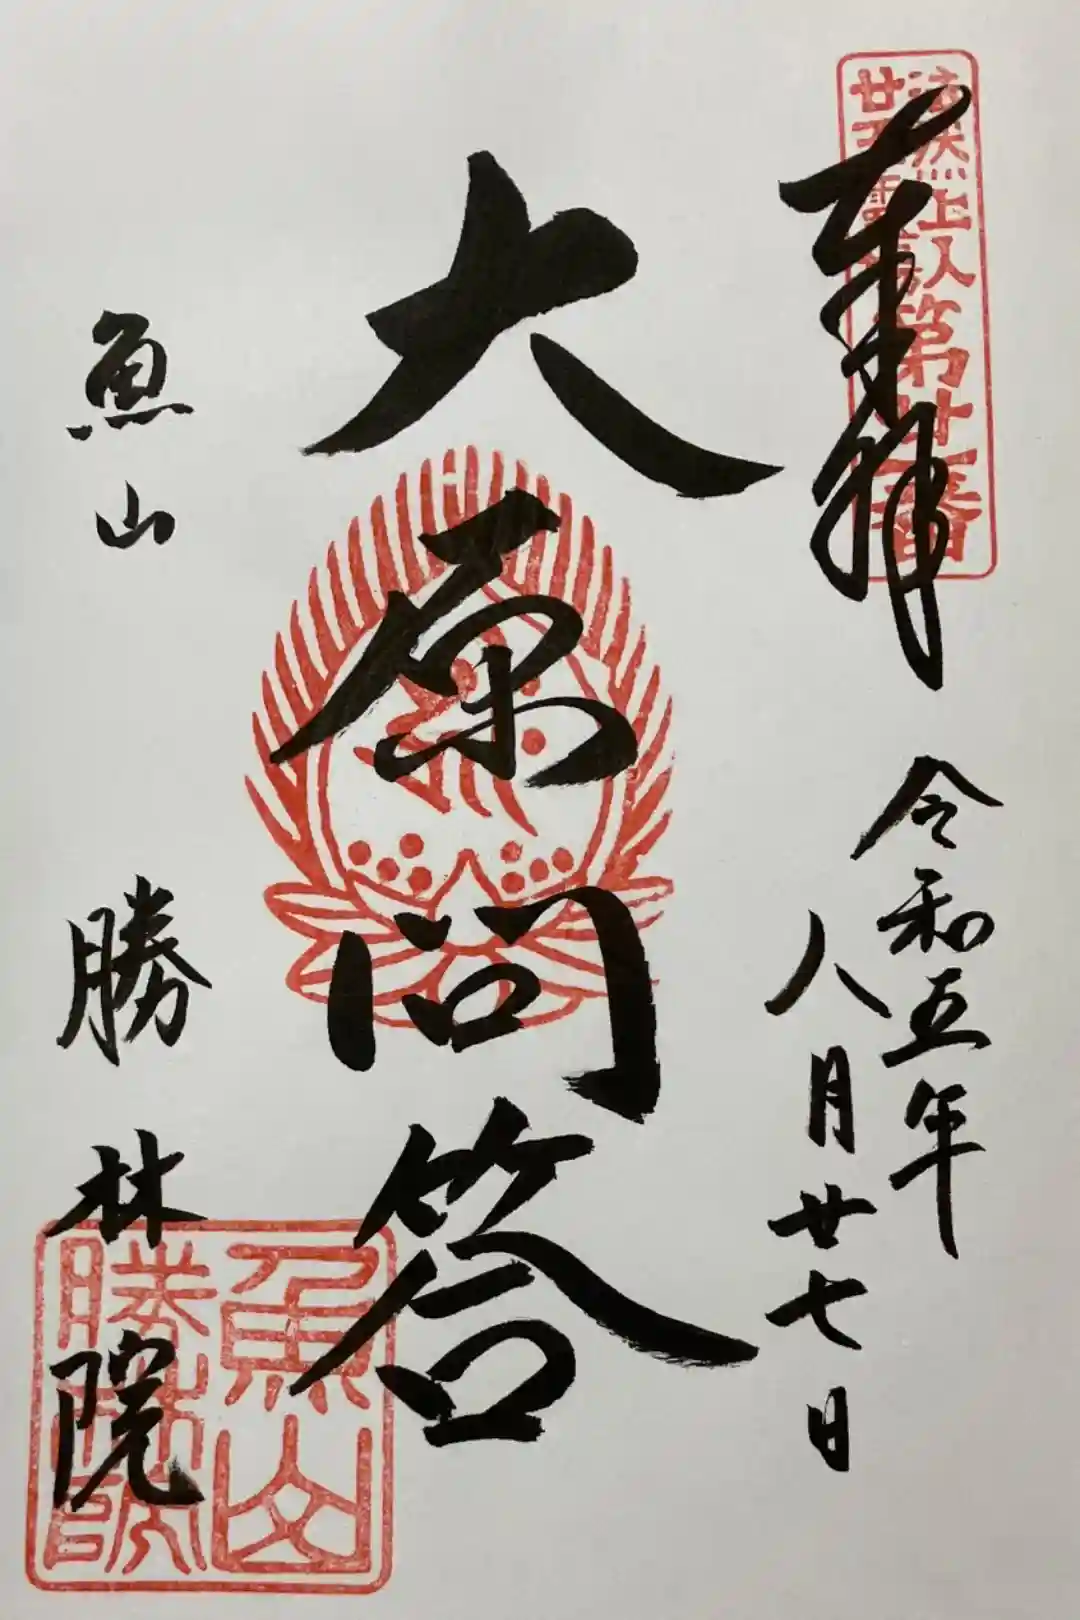 奉拝
法然上人
廿五霊場
第廿一番
令和五年
八月廿七日
大原問答
魚山 勝林院
魚山
勝林院